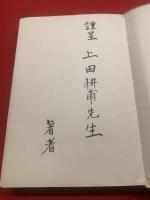 謹呈
上田耕甫先生
著者